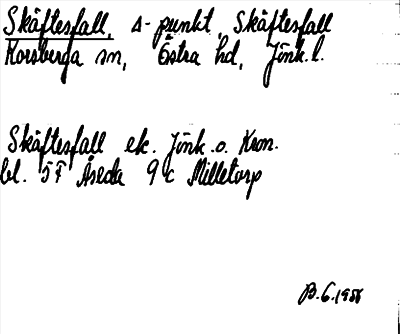 Skäftesfall, s-punkt, Skäftesfall
Korsberga sn, Östra hd, Jönk.l.
Skäftesfall ek. Jönk.o. Kron.
bl. 5F Åseda 9c Milletorp
B.G.1956